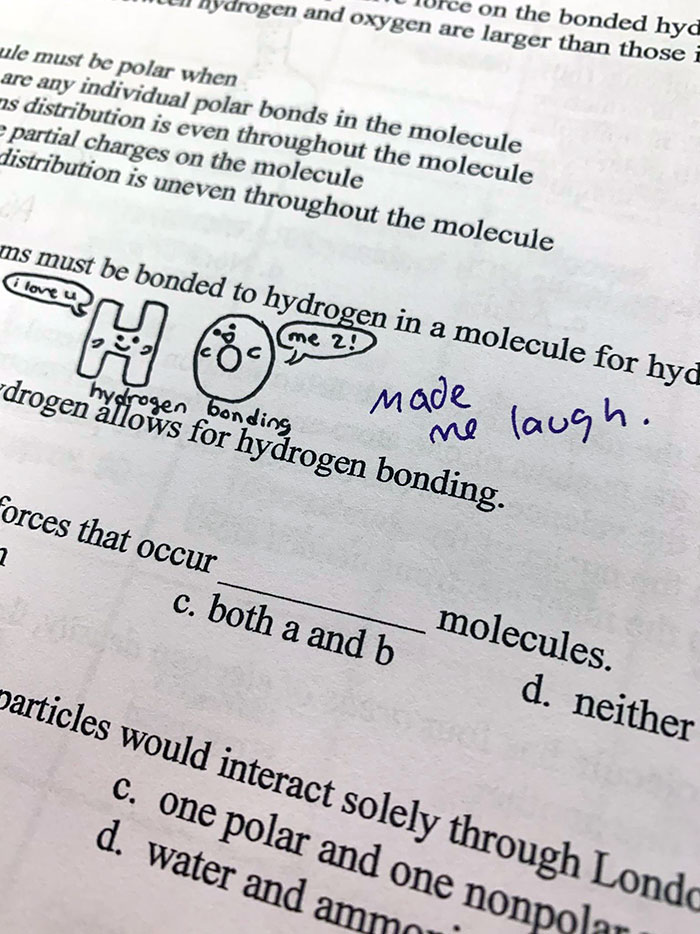 force on the bonded hyd
hydrogen and oxygen are larger than those i
ule must be polar when
are any individual polar bonds in the molecule
ns distribution is even throughout the molecule
e partial charges on the molecule
distribution is uneven throughout the molecule
ms must be bonded to hydrogen in a molecule for hyd
i love u
me 2!
hydrogen bonding
made
me laugh.
drogen allows for hydrogen bonding.
forces that occur ________ molecules.
c. both a and b
d. neither
particles would interact solely through Londo
c. one polar and one nonpolar
d. water and ammoni